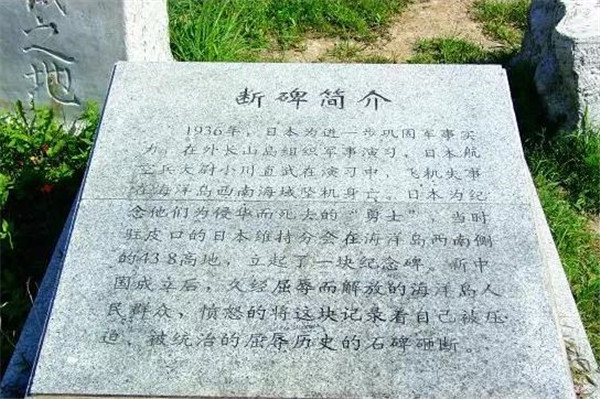 之地
断碑简介
1936年，日本为进一步巩固军事实
力，在外长山岛组织军事演习，日本航
空兵大尉小川直武在演习中，飞机失事
在海洋岛西南海域坠机身亡。日本为纪
念他们为侵华而死去的“勇士”，当时
驻皮口的日本维持分会在海洋岛西南侧
的43.8高地，立起了一块纪念碑。新中
国成立后，久经屈辱而解放的海洋岛人
民群众，愤怒的将这块记录着自己被压
迫、被统治的屈辱历史的石碑砸断。